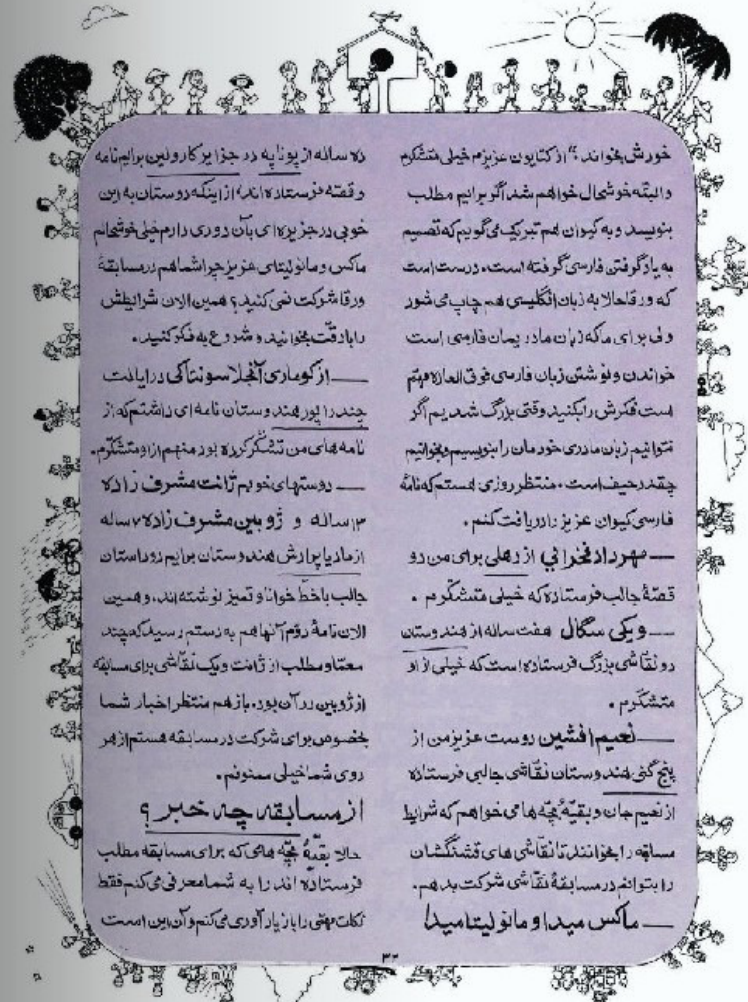 خودش بخواند." از کتایون عزیزم خیلی متشکرم
والبته خوشحال خواهم شد اگر برایم مطلب
بنویسد و به کیوان هم تبریک می گویم که تصمیم
به یادگرفتن فارسی گرفته است. درست است
که ورقا حالا به زبان انگلیسی هم چاپ می شود
ولی برای ما که زبان مادریمان فارسی است
خواندن و نوشتن زبان فارسی فوق العاده مهم
است فکرش را بکنید وقتی بزرگ شدیم اگر
نتوانیم زبان مادری خودمان را بنویسیم و بخوانیم
چقدر حیف است. منتظر روزی هستم که نامهٔ
فارسی کیوان عزیز را دریافت کنم.
— مهرداد فخرائی از دهلی برای من دو
قصهٔ جالب فرستاده که خیلی متشکّرم .
— ویکی سگال هفت ساله از هندوستان
دو نقاشی بزرگ فرستاده است که خیلی از او
متشکرم .
— نعیم افشین دوست عزیز من از
پنج گنی هندوستان نقّاشی جالبی فرستاده
از نعیم جان و بقیّهٔ بچّه ها می خواهم که شرایط
مسابقه را بخوانند تا نقّاشی های قشنگشان
را بتوانم در مسابقهٔ نقّاشی شرکت بدهم.
— ماکس میدا و مانولیتا میدا
ده ساله از پوناپه در جزایر کارولین برایم نامه
و قصّه فرستاده اند، از اینکه دوستان به این
خوبی در جزیره ای بآن دوری دارم خیلی خوشحالم
ماکس و مانولیتای عزیز چرا شما هم در مسابقهٔ
ورقا شرکت نمی کنید؟ همین الان شرایطش
را بادقّت بخوانید و شروع به فکر کنید.
— از کوماری آنجلا سونتاکی در ایالت
چندراپور هندوستان نامه ای داشتم که از
نامه های من تشکّر کرده بود منهم از او متشکّرم.
— دوستهای خوبم ژانت مشرف زاده
۱۳ ساله و ژوبین مشرف زاده ۷ ساله
از مادیاپرادش هندوستان برایم دو داستان
جالب با خطّ خوانا و تمیز نوشته اند، و همین
الان نامهٔ دوّم آنها هم به دستم رسید که چند
معمّا و مطلب از ژانت و یک نقّاشی برای مسابقه
از ژوبین در آن بود. باز هم منتظر اخبار شما
بخصوص برای شرکت در مسابقه هستم از هر
دوی شما خیلی ممنونم.
از مسابقه چه خبر؟
حالا بقیّهٔ بچّه هایی که برای مسابقه مطلب
فرستاده اند را به شما معرفی می کنم فقط
نکات مهمّی را باز یادآوری می کنم و آن این است
۳۲